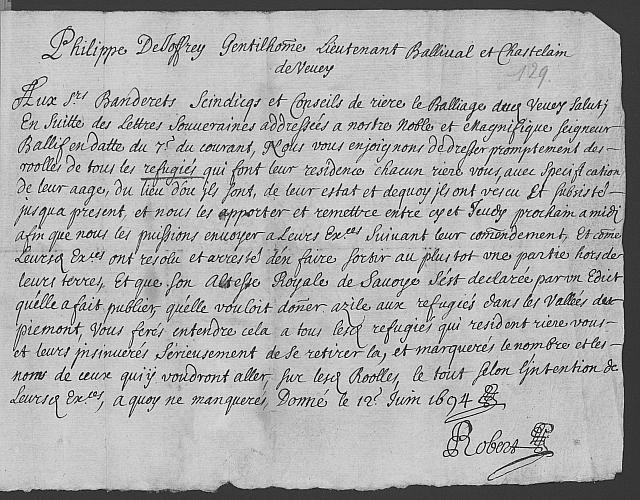 Philippe DeJoffrey Gentilhome Lieutenant Ballival et Chastelain
de Vevey
129.
Aux Srs Banderets Scindicqs et Conseils de riere le Balliage de Vevey Salut;
En Suitte des Lettres Souveraines addressées a nostre Noble et Magnifique Seigneur
Ballif en datte du 7e du courant, Nous vous enjoignons de dresser promptement des
roolles de tous les refugiés qui font leur residence chacun riere vous, avec Specification
de leur aage, du lieu d'ou ils sont, de leur estat et dequoy ils ont vescu Et subsisté
jusqua present, et nous les apporter et remettre entre cy et Jeudy prochain a midi
afin que nous les puissions envoyer a Leurs Exces Suivant leur comendement, Et come
Leursd Exces ont resolu et arresté d'en faire sortir au plustot une partie hors de
leurs terres, Et que son Altesse Royale de Savoye s'est declarée par un Edict
qu'elle a fait publier, qu'elle vouloit doner azile aux refugiés dans les Vallées de
piemont, Vous ferés entendre cela a tous lesd refugiés qui resident riere vous
et leurs insinuerés Serieusement de se retirer la, et marquerés le nombre et les
noms de ceux qui y voudront aller sur lesd Roolles, le tout selon l'intention de
Leursd Exces, a quoy ne manquerés, Donné le 12e Juin 1694
Robert